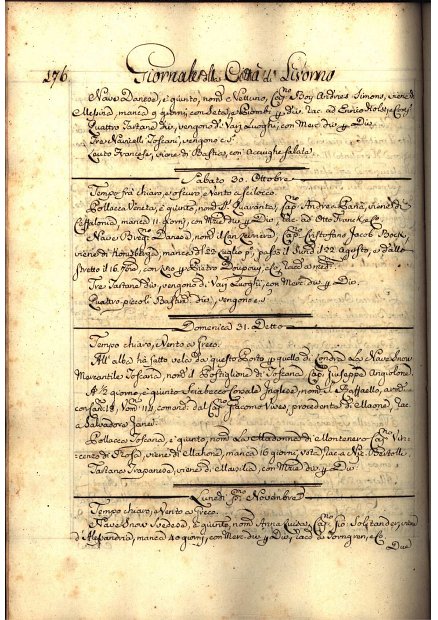 176
Giornale della Città di Livorno
Nave Danese, è giunto, nom.ª Nettuno, Cap.no Boy Andries Simons, viene di
Messina, manca 9 giorni, con Seta, e Piombi p. div. rac. ad Enrico
Quattro Tartane div. vengono di Varij Luoghi, con Merc. div. p. Div.
Tre Navicelli Toscani, vengono
Leuto Francese, viene di Bastia, con Acciughe salate
Sabato 30. Ottobre
Tempo frà chiaro, e oscuro, e Vento a Scilocco.
Pollacca Veneta, è giunto, nom.ª S. Quaranta, Cap. Andrea Gaña, viene di
Ceffalonia, manca 11. Giorni, con Merc. div. p. Div. rac. ad Otto Franck, e Co.
Nave Brig.no Danese, nom.ª il Cristofano Jacob Bock,
viene di manca di 22 Luglio p. passò il Sund il 22 Agosto, e dallo
stretto il 16 con p. Pietro
Tre Tartane div. vengono di Varij Luoghi, con Merc. div. p. Div.
Quattro piccoli Bastim. div. vengono
Domenica 31. Detto
Tempo chiaro, e Vento a Greco.
All' alba hà fatto vela da questo Porto p. quello di Londra La Nave Snow
Mercantile Toscana, nom.ª il Postiglione di Toscana Cap. Giuseppe Angiolone.
A ½ giorno, è giunto Sciabecco Corsale Inglese, nom.ª il Raffaello, arm.º
con Can. 18, Uom. 114, comand. dal Cap. Giacomo Vives, procedente di Maone, rac.
a Salvadore
Pollacca Toscana, è giunto, nom.ª La Madonna di Montenero Cap.no Vin-
cenzo di Rosa, viene di Mahone, manca 16 giorni, vota, rac. a Nic. Bertolli
Tartana Trapanese, viene di Marsilia, con Merc. div. p. Div.
Lunedì Pmo. Novembre
Tempo chiaro, e Vento a Greco.
Nave Snow Svedese, è giunto, nom.ª Anna Luisa, Cap.no Gio. viene
d'Alessandria, manca 40 giorni, con Merc. div. p. Div. rac. a e Co.
Due